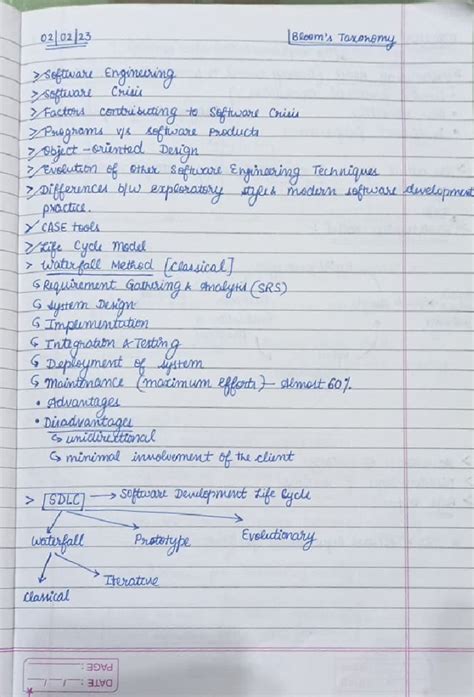 02/02/23
Bloom's Taxonomy
> Software Engineering
> Software Crisis
> Factors contributing to Software Crisis
> Programs v/s software products
> Object-oriented Design
> Evolution of Other Software Engineering Techniques
> Differences b/w exploratory style & modern software development
practice.
> CASE tools
> Life Cycle Model
> Waterfall Method [Classical]
↳ Requirement Gathering & Analysis (SRS)
↳ System Design
↳ Implementation
↳ Integration & Testing
↳ Deployment of System
↳ Maintenance (maximum efforts) - almost 60%
• Advantages
• Disadvantages
↳ unidirectional
↳ minimal involvement of the client
> [SDLC] → Software Development Life Cycle
Waterfall Prototype Evolutionary
Iterative
Classical
PAGE:
DATE: / /